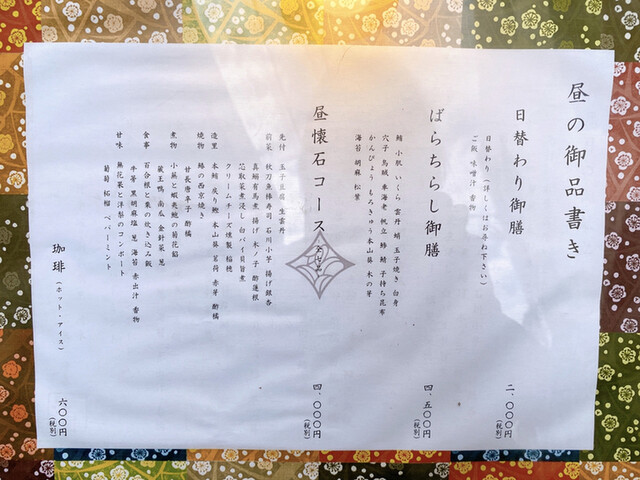 昼の御品書き
日替わり御膳
日替わり（詳しくはお尋ね下さい）
ご飯 味噌汁 香物
二、〇〇〇円
（税別）
ばらちらし御膳
鮪 小肌 いくら 雲丹 蛸 玉子焼き 白身
穴子 烏賊 車海老 帆立 鯵 鯖 子持ち昆布
かんぴょう もろきゅう 本山葵 木の芽
海苔 胡麻 松葉
四、五〇〇円
（税別）
昼懐石コース
先付 玉子豆腐 生雲丹
前菜 秋刀魚棒寿司 石川小芋 揚げ銀杏
真鰯有馬煮 揚げ木ノ子 酢蓮根
芯取菜煮浸し 白バイ貝旨煮
クリームチーズ燻製 稲穂
造里 本鮪 戻り鰹 本山葵 茗荷 赤芽 酢橘
焼物 鰆の西京焼き
甘長唐辛子 酢橘
煮物 小蕪と蝦夷鮑の菊花餡
蔵王鴨 南瓜 金針菜 葱
食事 百合根と栗の炊き込み飯
半膳 黒胡麻塩 葱 海苔 赤出汁 香物
甘味 無花果と洋梨のコンポート
葡萄 柘榴 ペパーミント
四、〇〇〇円
（税別）
珈琲（ホット・アイス）
六〇〇円
（税別）